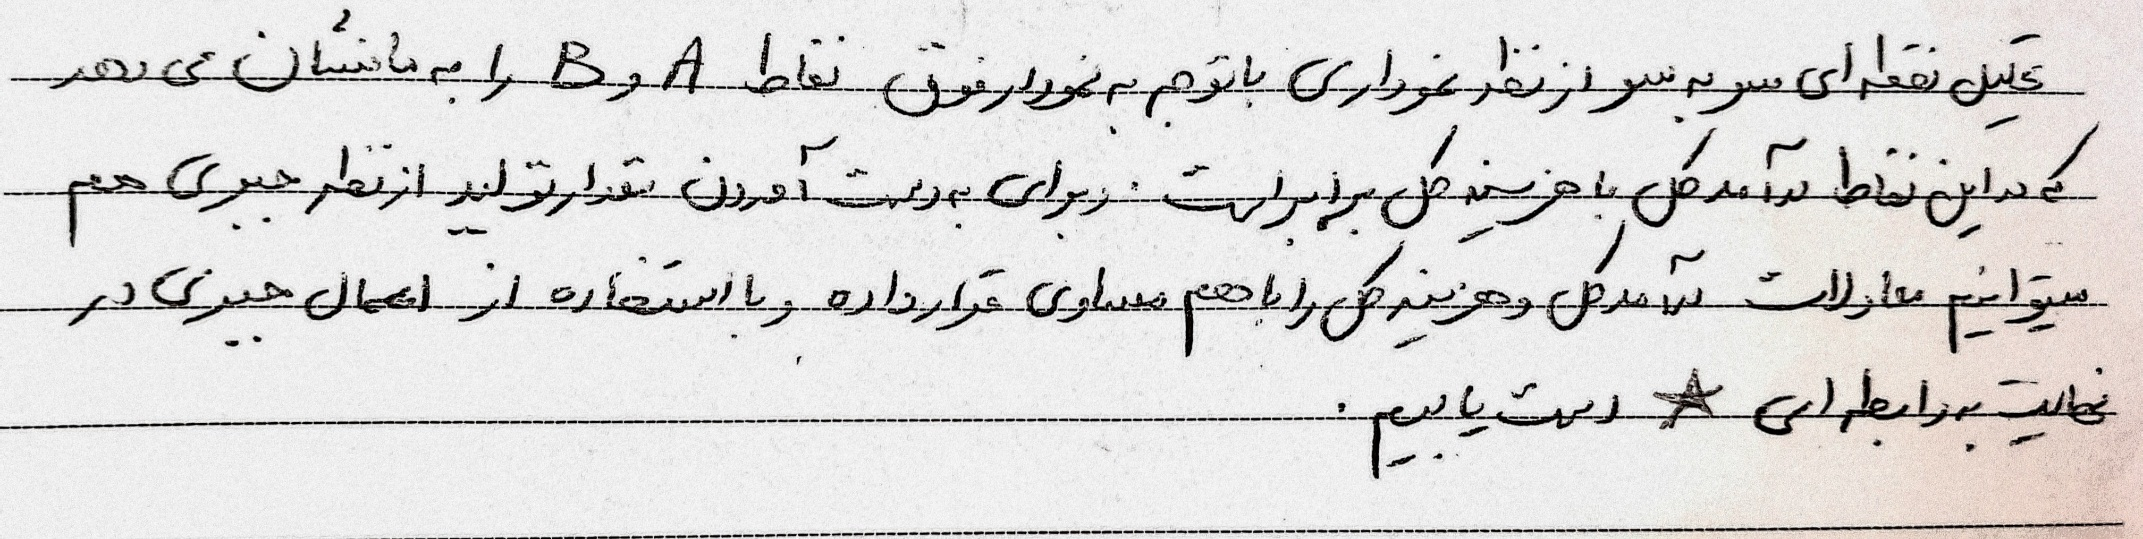 تحلیل نقطه ای سر به سر از نظر نموداری با توجه به نمودار فوق نقاط A و B را به ما نشان می دهد
که در این نقاط درآمد کل با هزینه کل برابر است. و برای به دست آوردن مقدار تولید از نظر جبری هم
میتوانیم معادلات درآمد کل و هزینه کل را با هم مساوی قرار داده و با استفاده از اعمال جبری در
نهایت به رابطه ای ★ دست یابیم.